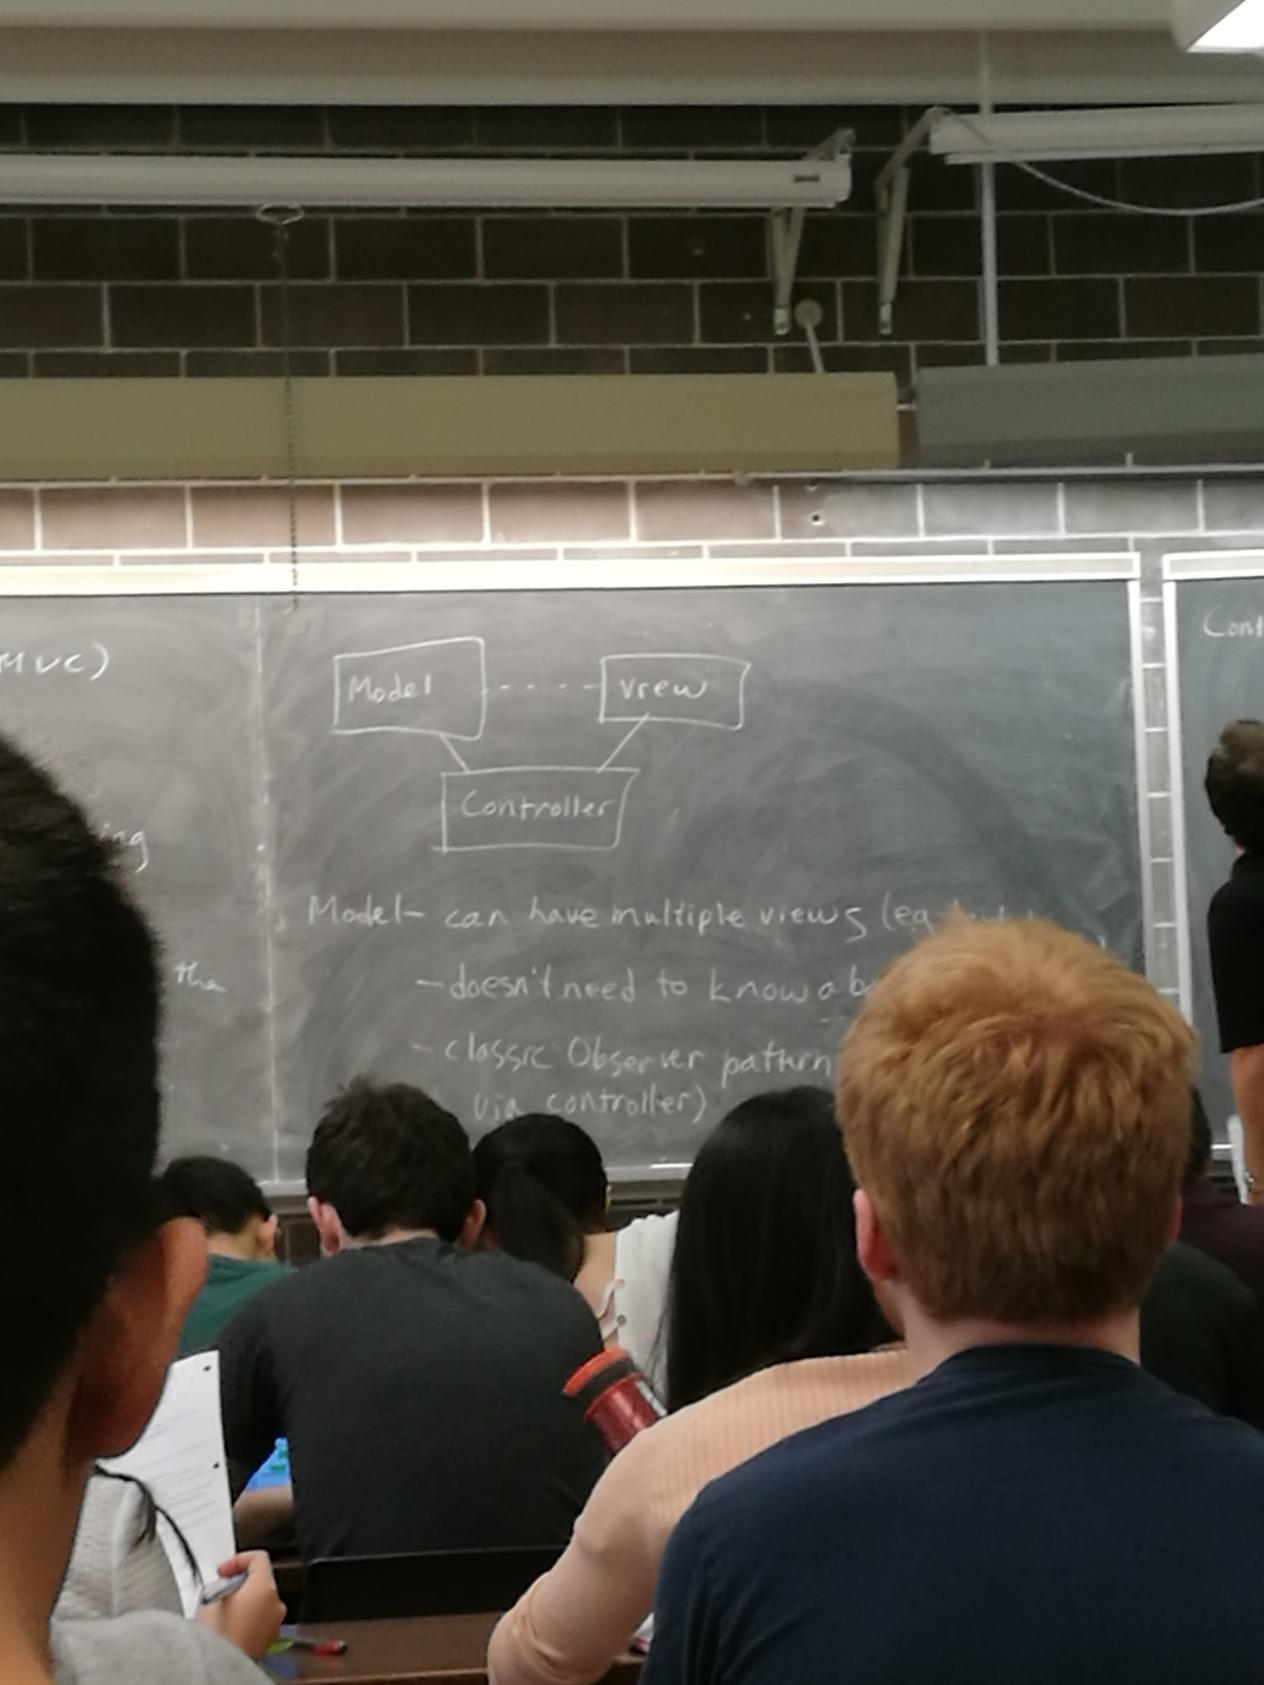 MVC)
Model
View
Controller
Model- can have multiple views (eg
-doesn't need to know
-classic Observer pattern
via controller)